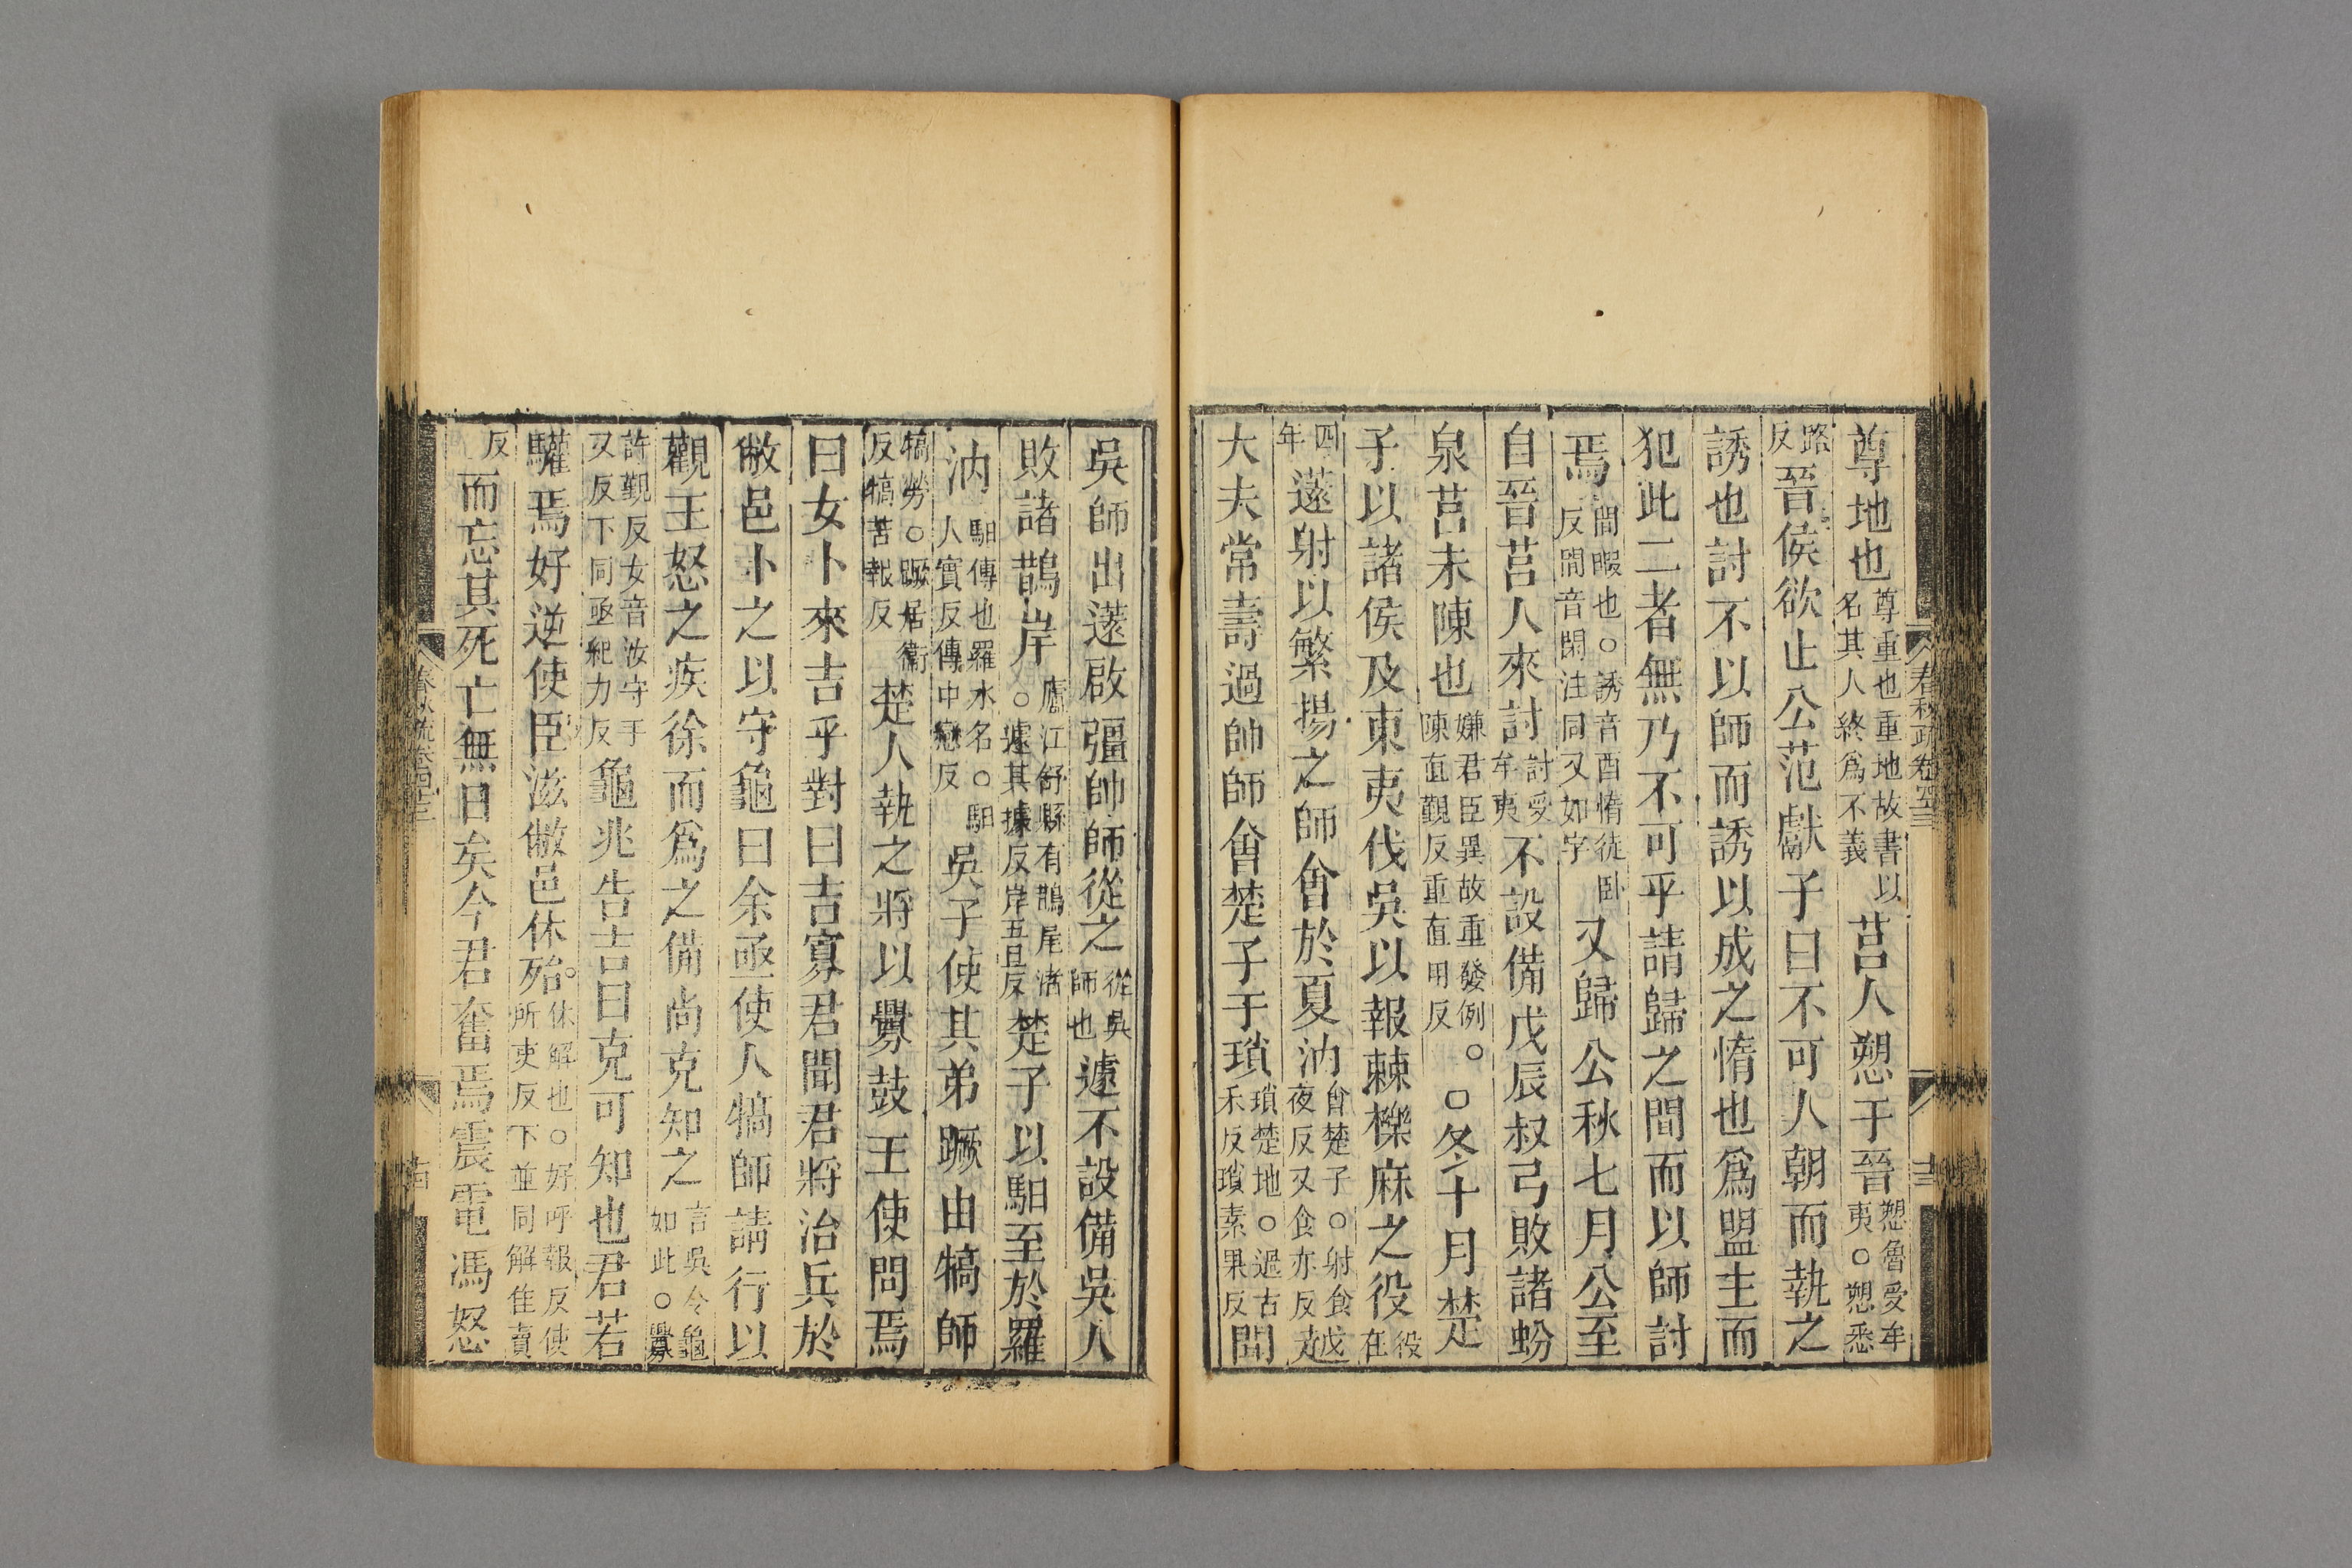 春秋疏卷四十三
十三
尊地也尊重也重地故書以名其人終爲不義莒人愬于晉愬魯受牟夷○愬悉
路反晉侯欲止公范獻子曰不可人朝而執之
誘也討不以師而誘以成之惰也爲盟主而
犯此二者無乃不可乎請歸之間而以師討
焉間暇也○誘音酉惰徒臥反間音閑注同又如字乃歸公秋七月公至
自晉莒人來討討受牟夷不設備戊辰叔弓敗諸蚡
泉莒未陳也嫌君臣異故重發例○陳直覲反重直用反○冬十月楚
子以諸侯及東夷伐吳以報棘櫟麻之役役在
四年薳射以繁揚之師會於夏汭會楚子○射食夜反又食亦反越
大夫常壽過帥師會楚子于瑣瑣楚地○過古禾反瑣素果反聞
吳師出薳啟彊帥師從之從吳師也遽不設備吳人
敗諸鵲岸廬江舒縣有鵲尾渚○遽其據反岸五旦反楚子以馹至於羅
汭馹傳也羅水名○馹人實反傳中戀反吳子使其弟蹶由犒師
犒勞○蹶居衛反犒苦報反楚人執之將以釁鼓王使問焉
曰女卜來吉乎對曰吉寡君聞君將治兵於
敝邑卜之以守龜曰余亟使人犒師請行以
觀王怒之疾徐而爲之備尚克知之言吳令龜如此○釁
許覲反女音汝守手又反下同亟紀力反龜兆告吉曰克可知也君若
驩焉好逆使臣滋敝邑休殆休解也○好呼報反使所吏反下並同解隹賣
反而忘其死亡無日矣今君奮焉震電馮怒
春秋疏卷四十三
十四